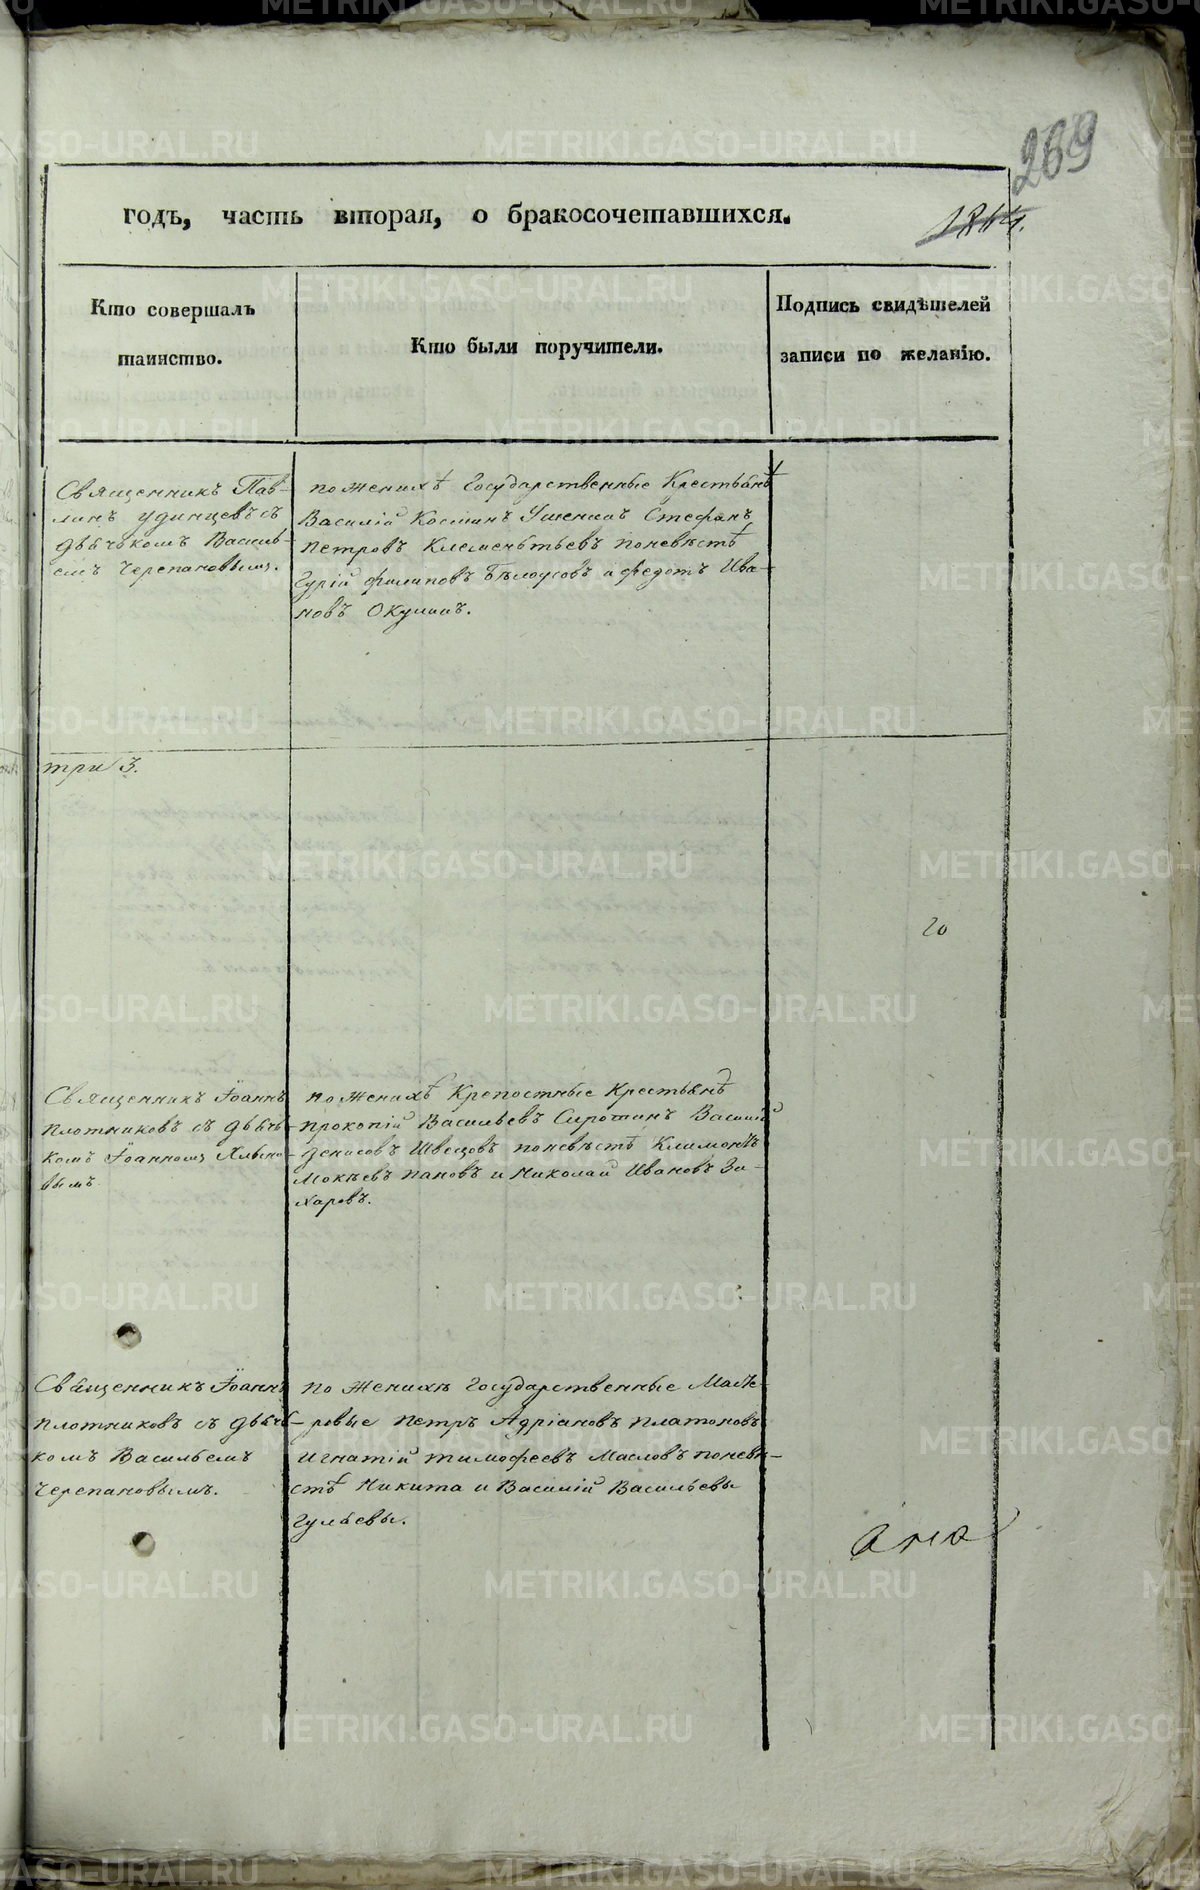 269
годъ, часть вторая, о бракосочетавшихся.
1844.
Кто совершалъ
таинство.
Кто были поручители.
Подпись свидѣтелей
записи по желанію.
Священникъ Пав-
линъ Удинцевъ съ
дьячькомъ Василь-
емъ Черепановымъ.
по женихѣ Государственные Крестьянѣ
Василій Косминъ Стефанъ
Петровъ Клеменьтьевъ поневѣстѣ
Гурій Филиповъ Бѣлоусовъ и Федотъ Ива-
новъ Окулинъ.
три 3.
20
Священникъ Іоаннъ
Плотниковъ съ дьячь-
комъ Іоанномъ
вымъ.
по женихѣ Крепостные Крестьянѣ
Прокопій Васильевъ Сиротинъ Василій
Денисовъ Швецовъ поневѣстѣ Климонтъ
Мокѣевъ Пановъ и Николай Ивановъ За-
харовъ.
Священникъ Іоаннъ
Плотниковъ съ дьячь-
комъ Васильемъ
Черепановымъ.
по женихѣ Государственные Масте-
ровые Петръ Адріановъ Платоновъ
Игнатій Тимофеевъ Масловъ поневѣ-
стѣ Никита и Василій Васильевы
Гульевы.